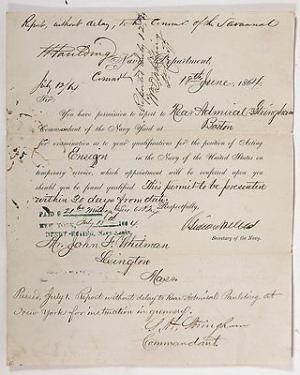 Report, without delay, to the Comm't of the Savannah
H Paulding
Comm't
July 12/64
Navy Department,
18th June, 1864
Sir:
You have permission to report to Rear Admiral Stringham
Commandant of the Navy Yard at Boston
for examination as to your qualifications for the position of Acting
Ensign in the Navy of the United States on
temporary service, which appointment will be conferred upon
you should you be found qualified. This permit to be presented
within 20 days from date.
Respectfully,
PAID $
NEW YORK, July 13 1864
HENRY
Gideon Welles
Secretary of the Navy.
Mr. John F. Whitman
Lexington
Mass
Passed, July 1. Report without delay to Rear Admiral Paulding at
New York for instruction in gunnery.
S. H. Stringham
Commandant